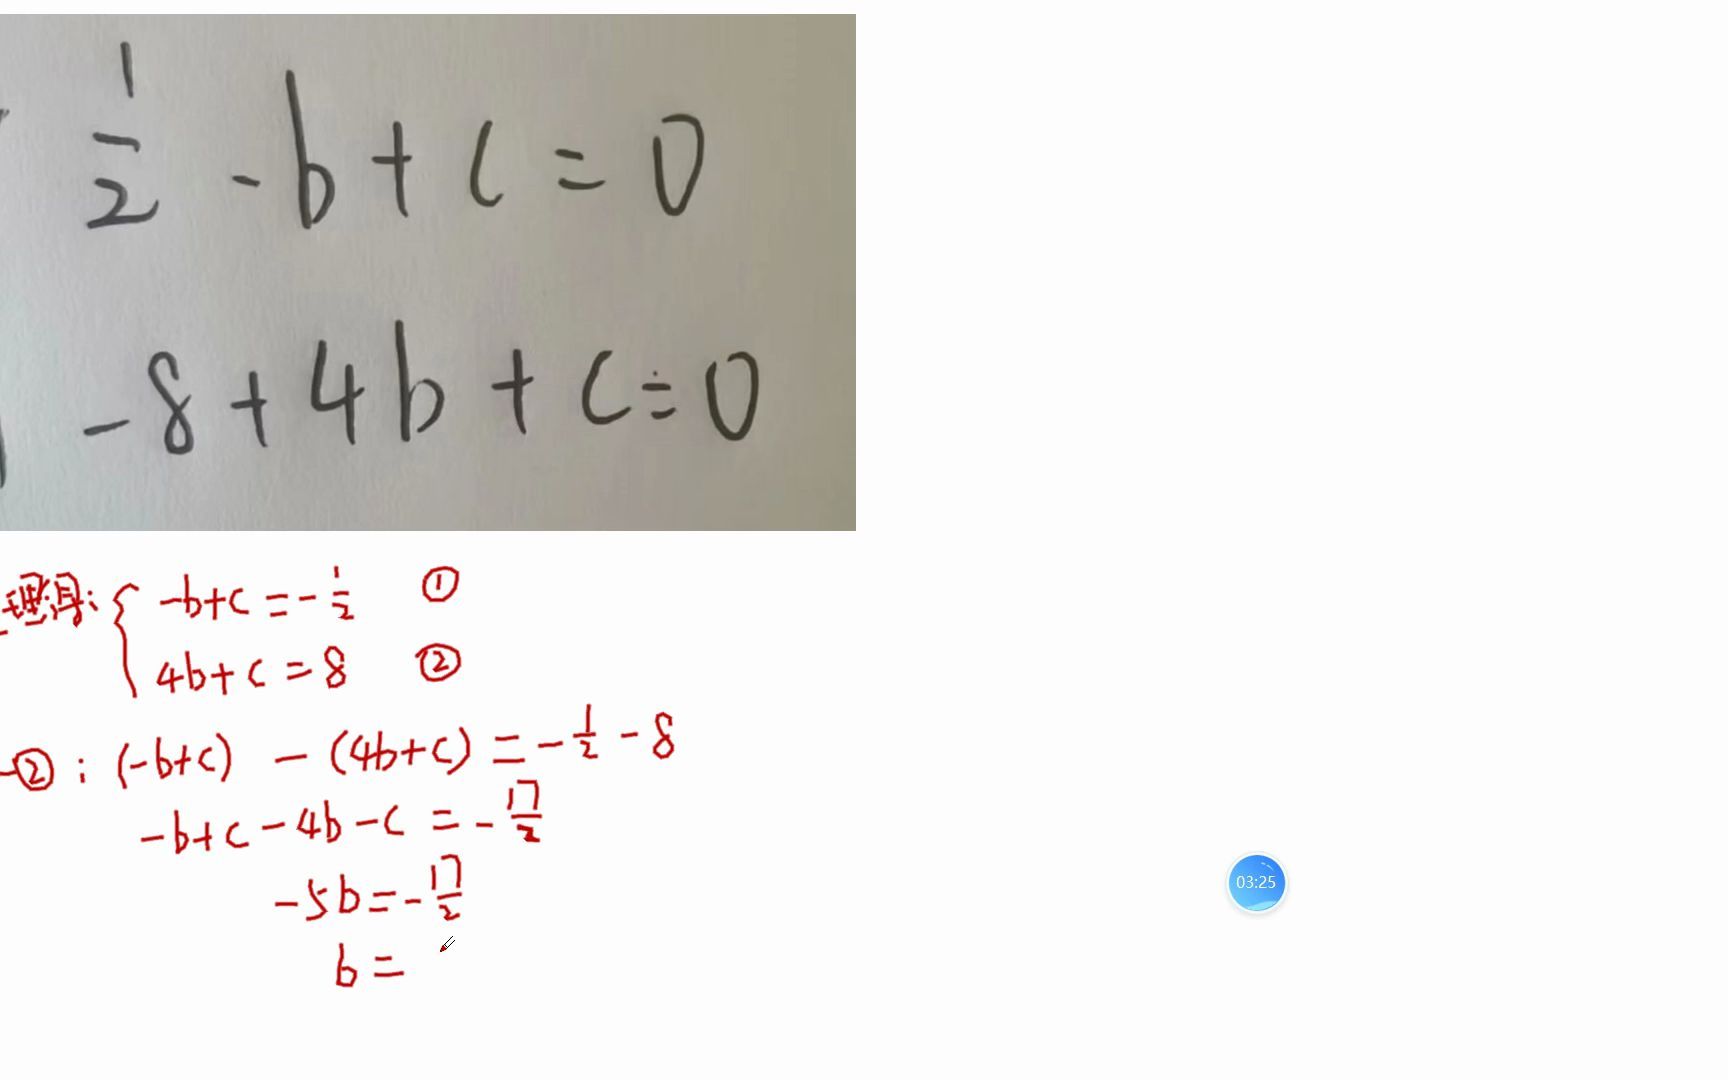 1/2 - b + c = 0
-8 + 4b + c = 0
理得:
-b+c = -1/2 ①
4b+c = 8 ②
-②: (-b+c) - (4b+c) = -1/2 - 8
-b+c-4b-c = -17/2
-5b = -17/2
b =
03:25